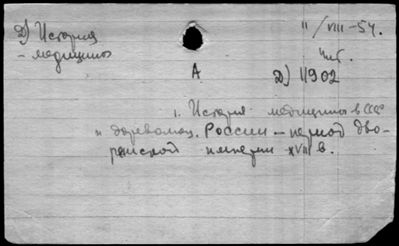 Д) История
- медицины
11/VIII-54.
чит.
А
Д) 11902
1. История медицины в СССР
и дореволюц. России – период дво-
рянской империи XVIII в.